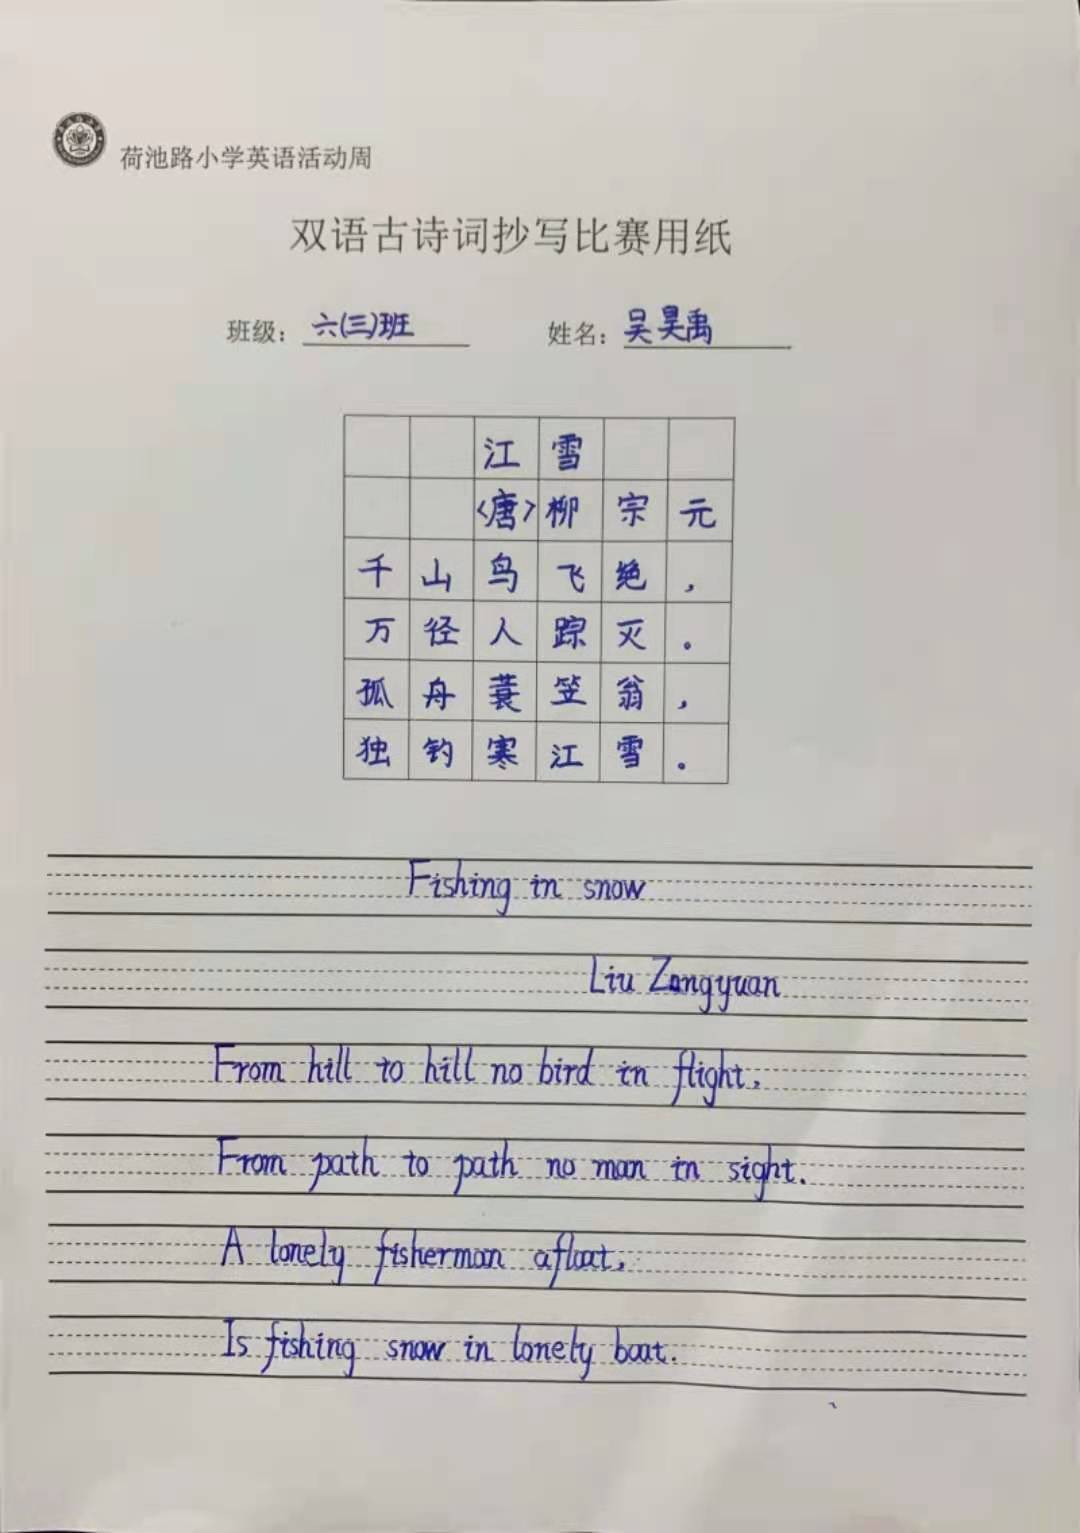 荷池路小学英语活动周
双语古诗词抄写比赛用纸
班级：六(三)班 姓名：吴昊禹
江雪
<唐>柳宗元
千山鸟飞绝，
万径人踪灭。
孤舟蓑笠翁，
独钓寒江雪。
Fishing in snow
Liu Zongyuan
From hill to hill no bird in flight,
From path to path no man in sight.
A lonely fisherman afloat,
Is fishing snow in lonely boat.